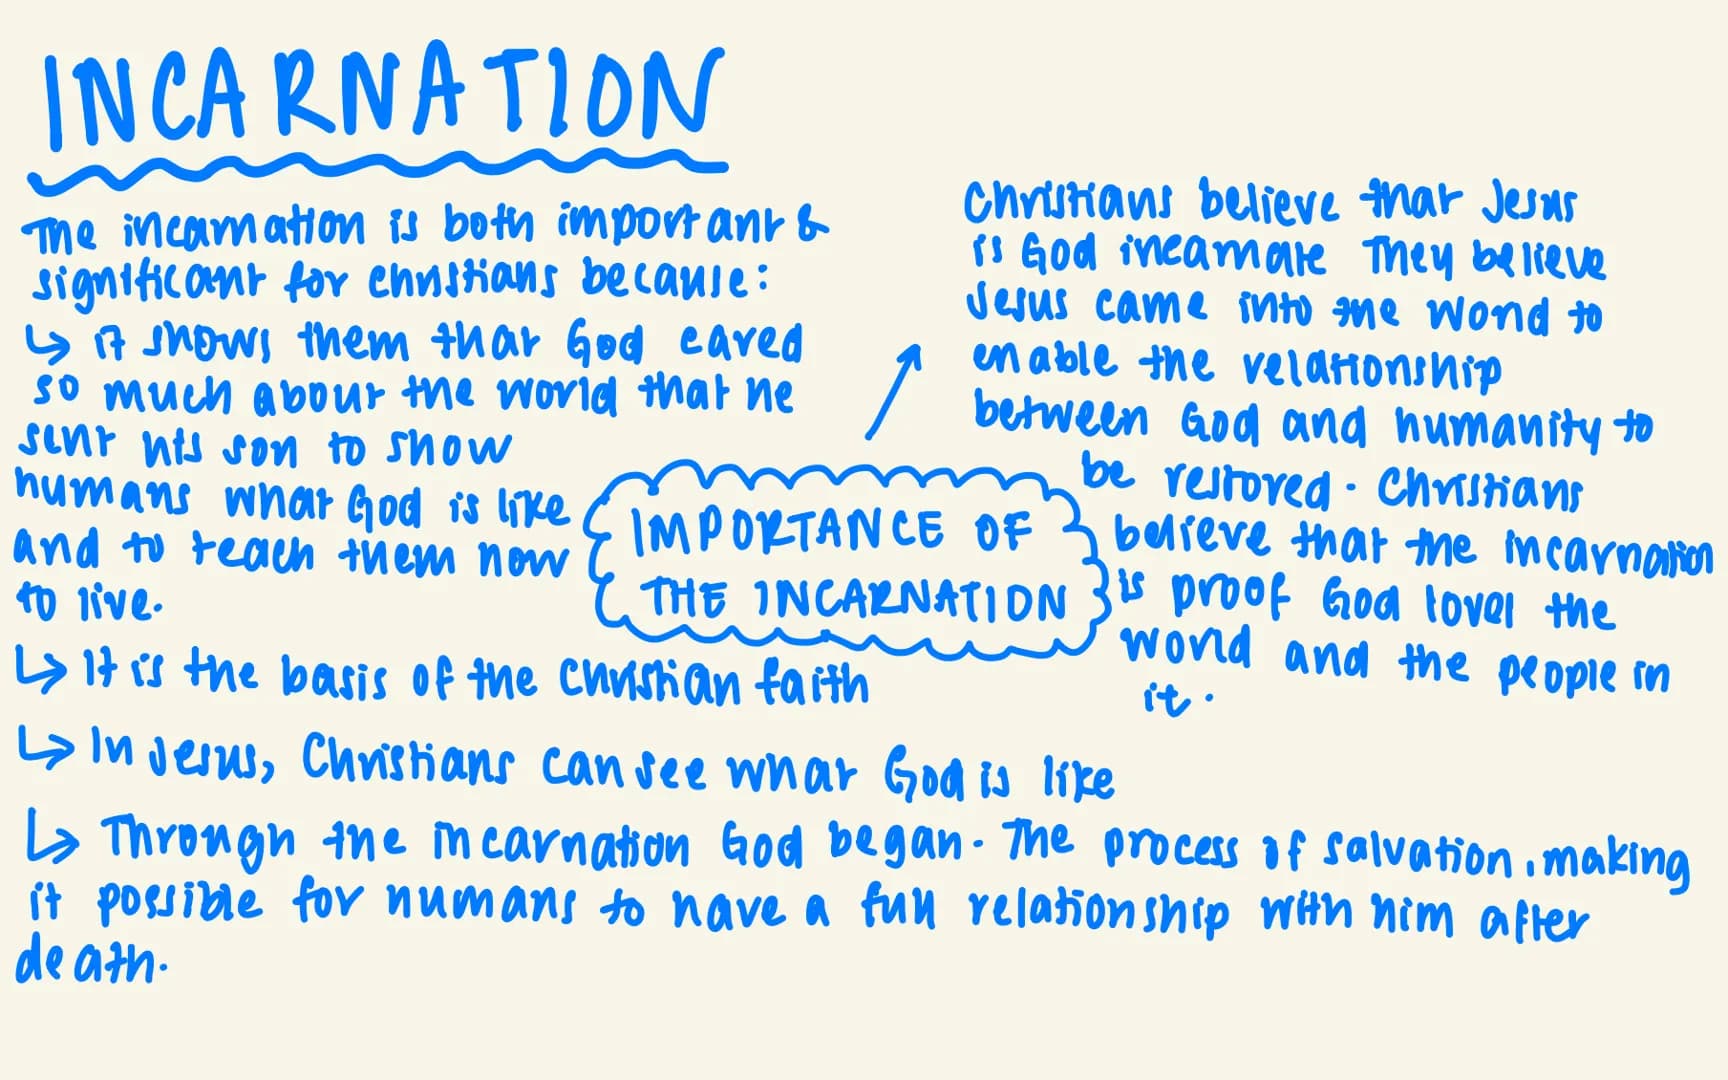 INCARNATION
The incarnation is both important &
significant for christians because:
↳ it shows them that God cared
so much about the world that he
sent his son to show
humans what God is like
and to teach them how
to live.
↳ It is the basis of the Christian faith
↳ In Jesus, Christians can see what God is like
↳ Through the incarnation God began. The process of salvation, making
it possible for humans to have a full relationship with him after
death.
IMPORTANCE OF
THE INCARNATION
Christians believe that Jesus
is God incarnate They believe
Jesus came into the world to
enable the relationship
between God and humanity to
be restored. Christians
believe that the incarnation
is proof God loves the
world and the people in
it.